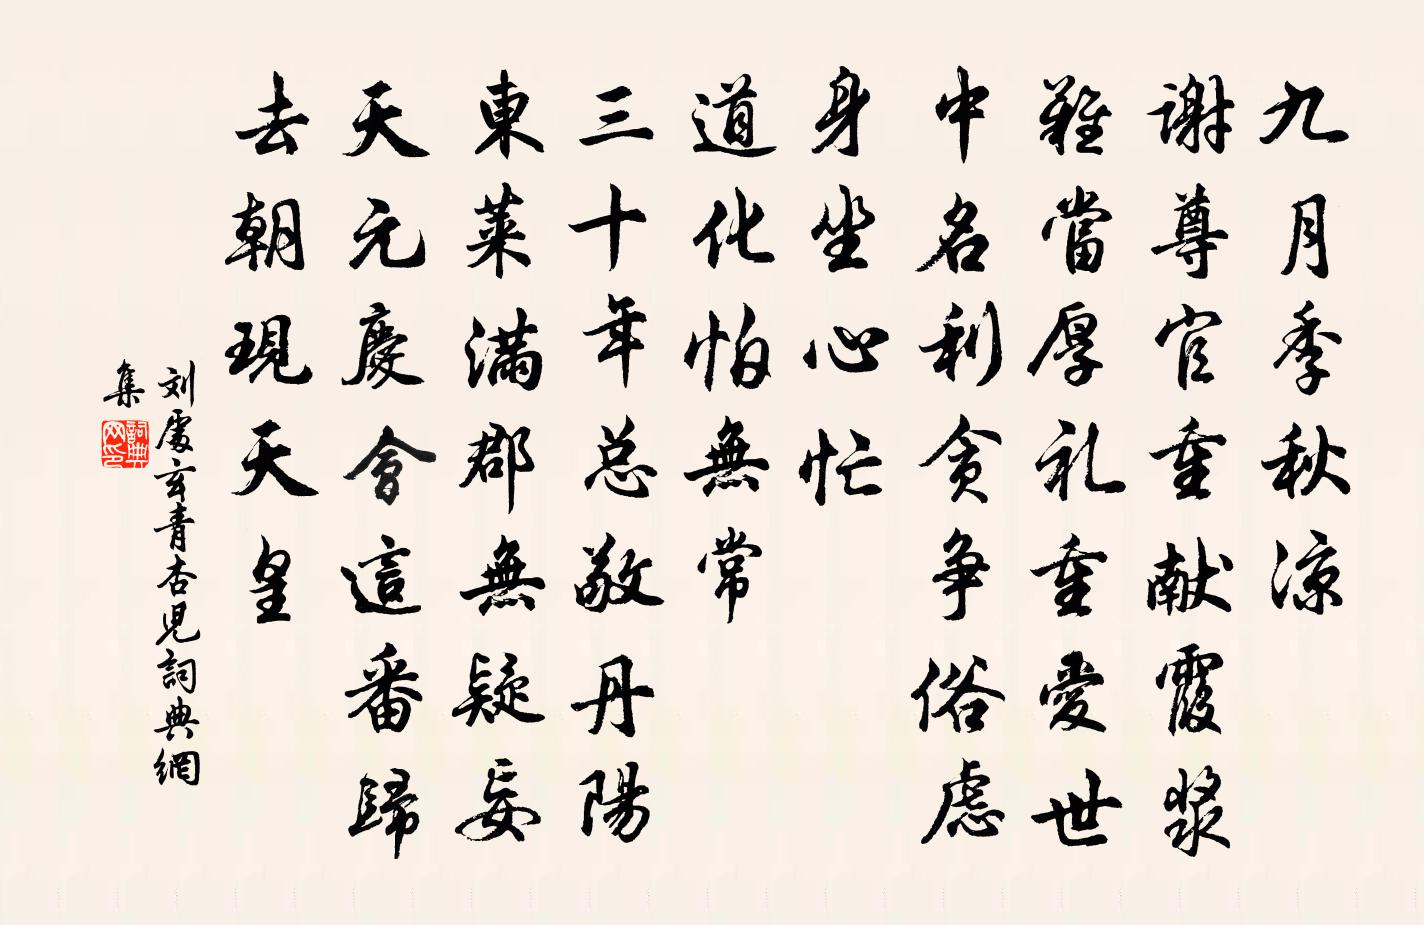 九月季秋涼
謝尊官重献霞漿
難當厚礼重愛世
中名利贪争俗慮
身坐心忙
道化怕無常
三十年总敬丹陽
東萊滿郡無疑妄
天元慶會這番歸
去朝現天皇
刘處玄青杏児詞典網
集
詞典网印